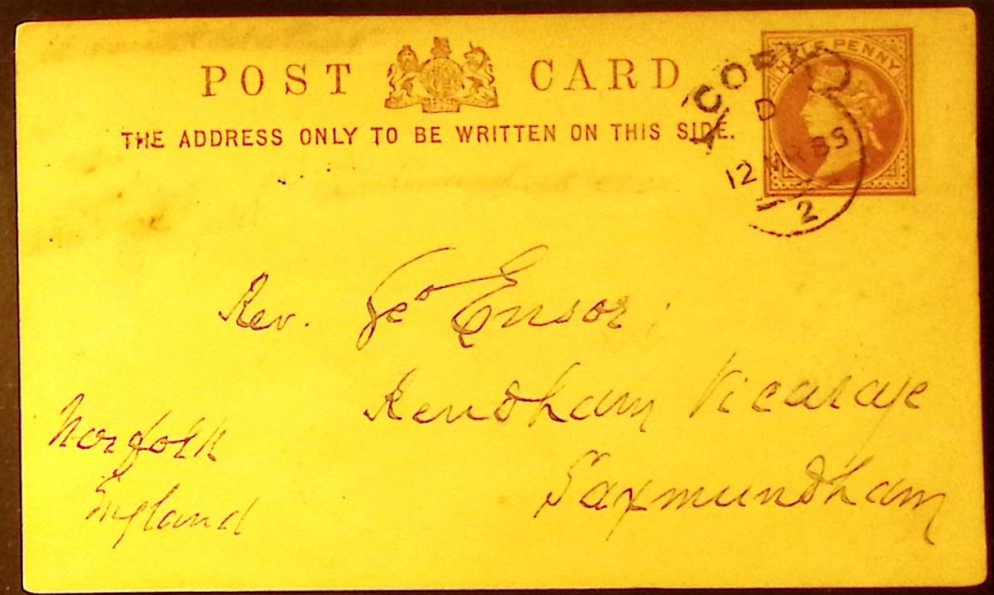 POST CARD
THE ADDRESS ONLY TO BE WRITTEN ON THIS SIDE.
HALFPENNY
CORK
D
12 MR 85
2
Rev. Geo Ensor
Rendham Vicarage
Saxmundham
Norfolk
England